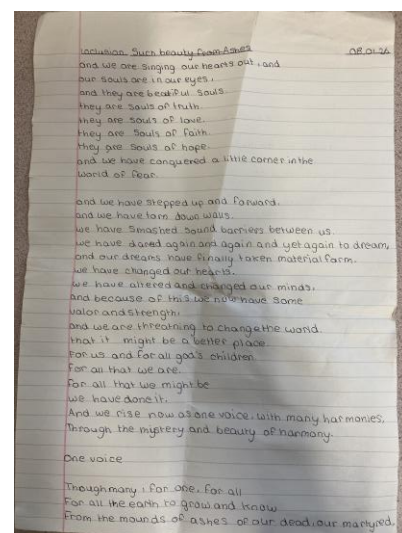 Inclusion. Such beauty from Ashes 08.01.26
and we are singing our hearts out, and
our souls are in our eyes,
and they are beatiful souls.
they are souls of truth.
they are souls of love.
they are souls of faith.
they are souls of hope.
and we have conquered a little corner in the
world of fear.
and we have stepped up and forward.
and we have torn down walls.
we have smashed sound barriers between us.
we have dared again and again and yet again to dream,
and our dreams have finally taken material form.
we have changed our hearts.
we have altered and changed our minds,
and because of this we now have some
valor and strength,
and we are threatning to change the world.
that it might be a better place.
For us and for all god's children.
for all that we are.
for all that we might be
we have done it.
And we rise now as one voice, with many harmonies,
Through the mystery and beauty of harmony.
One voice
Though many, for one, for all
For all the earth to grow and know
From the mounds of ashes of our dead, our martyred,